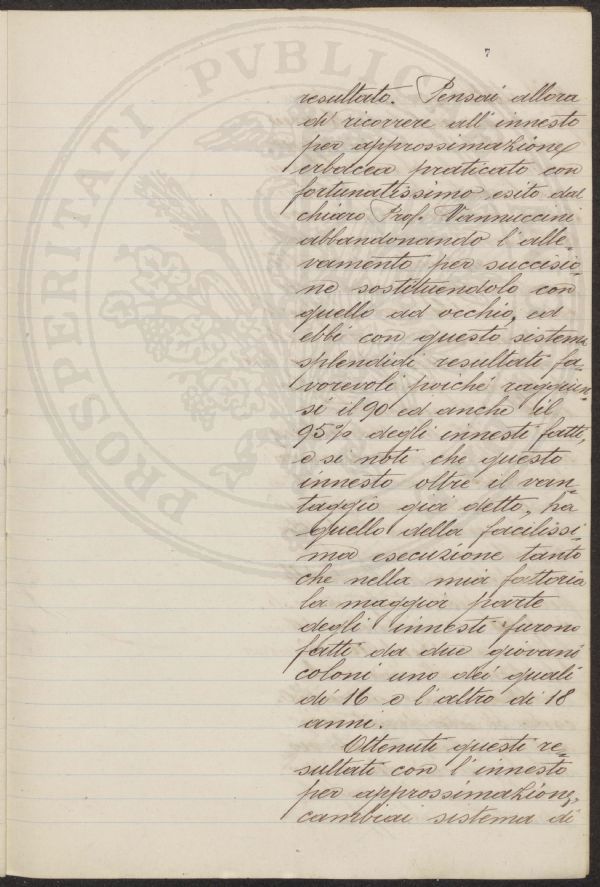 7
resultato. Pensai allora
di ricorrere all'innesto
per approssimazione
erbacea praticato con
fortunatissimo esito dal
chiaro Prof. Vannuccini
abbandonando l'alle-
vamento per succisio-
ne sostituendolo con
quello ad occhio, ed
ebbi con questo sistema
splendidi resultati fa-
vorevoli poiché raggiun-
si il 90 ed anche il
95% degli innesti fatti,
e si noti che questo
innesto oltre il van-
taggio già detto, ha
quello della facilissi-
ma esecuzione tanto
che nella mia fattoria
la maggior parte
degli innesti furono
fatti da due giovani
coloni uno dei quali
di 16 e l'altro di 18
anni.
Ottenuti questi re-
sultati con l'innesto
per approssimazione,
cambiai sistema di
PROSPERITATI PVBLIC